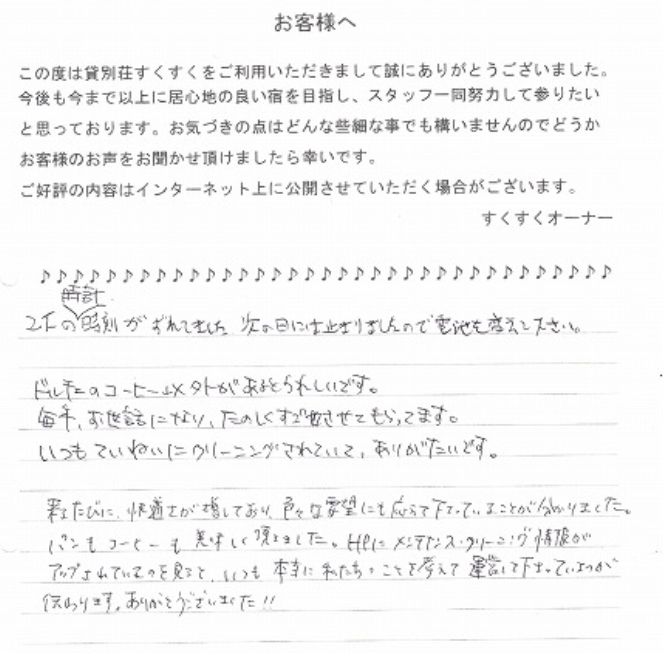 お客様へ
この度は貸別荘すくすくをご利用いただきまして誠にありがとうございました。
今後も今まで以上に居心地の良い宿を目指し、スタッフ一同努力して参りたい
と思っております。お気づきの点はどんな些細な事でも構いませんのでどうか
お客様のお声をお聞かせ頂けましたら幸いです。
ご好評の内容はインターネット上に公開させていただく場合がございます。
すくすくオーナー
♪♪♪♪♪♪♪♪♪♪♪♪♪♪♪♪♪♪♪♪♪♪♪♪♪♪♪♪♪♪♪♪♪♪♪
時計
2Fの時刻がずれてました 次の日には止まりましたので電池を変えて下さい。
ドルチェのコーヒー以外が あるとうれしいです。
毎年、お世話になり、たのしくすごさせてもらってます。
いつもていねいにクリーニングされていて、ありがたいです。
来るたびに、快適さが増しており、色々な要望にも応えて下さっていることが分かりました。
パンもコーヒーも美味しく頂きました。HPにメンテナンス・クリーニング情報が
アップされているのを見ると、いつも本当に私たちのことを考えて運営して下さっているのが
伝わります。ありがとうございました!!